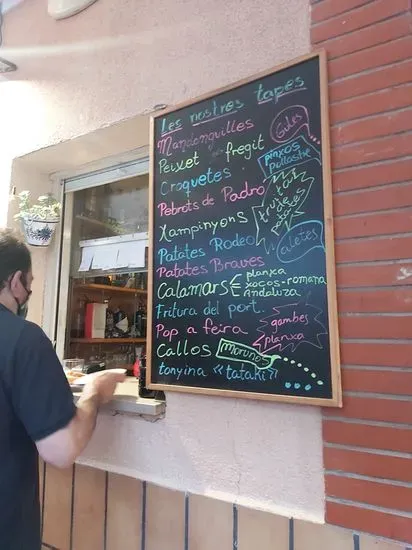 Les nostres tapes
Mandonguilles
Gules
Peixet fregit
pinxos
pullastre
Croquetes
Pebrots de Padro
truitas
de
patates
Xampinyons
Patates Rodeo
aletes
Patates Braves
Calamars
planxa
xocos-romana
Andaluza
Fritura del port.
Pop a feira
gambes
planxa
Callos
morunos
tonyina "tataki"